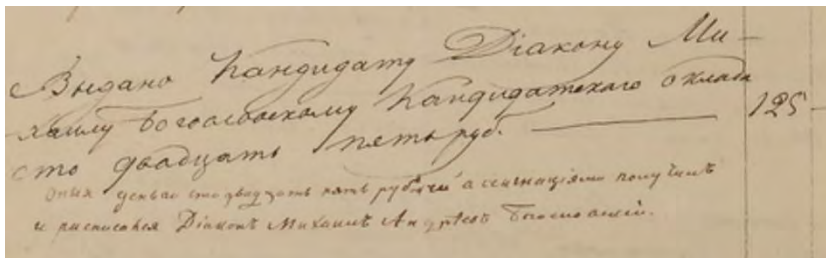 Выдано Кандидату Діакону Ми-
хаилу Богословскому Кандидатскаго оклада
сто двадцать пять руб. — 125 -
Оныя деньги сто двадцать пять рублей ассигнаціями получилъ
и росписался Діаконъ Михаилъ Андреевъ Богословскій.